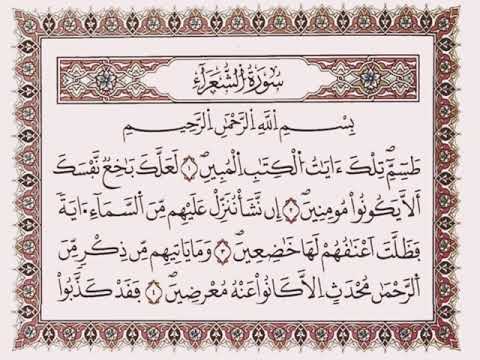 سُورَةُ الشُّعَرَآءِ
بِسْمِ اِللَّهِ اِلرَّحْمَٰنِ اِلرَّحِيمِ
طَسِٓمِّۖ تِلْكَ ءَايَٰتُ اُلْكِتَٰبِ اِلْمُبِينِۖ ١ لَعَلَّكَ بَٰخِعٞ نَّفْسَكَ
أَلَّا يَكُونُواْ مُومِنِينَۖ ٢ إِن نَّشَأْ نُنَزِّلْ عَلَيْهِم مِّنَ اَلسَّمَآءِ ا۬يَةٗ
فَظَلَّتَ اَعْنَٰقُهُمْ لَهَا خَٰضِعِينَۖ ٣ وَمَا يَاتِيهِم مِّن ذِكْرٖ مِّنَ
اَلرَّحْمَٰنِ مُحْدَثٍ اِلَّا كَانُواْ عَنْهُ مُعْرِضِينَۖ ٤ فَقَدْ كَذَّبُواْ